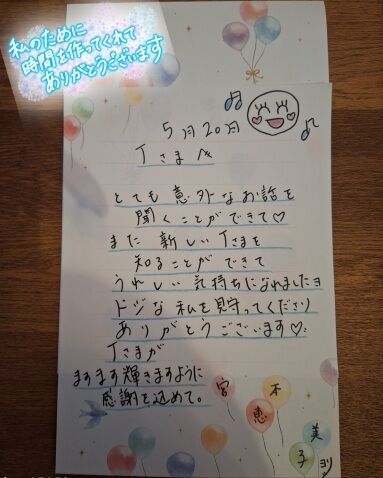 私のために
時間を作ってくれて
ありがとうございます
5月20日
Tさまへ
とても意外なお話を
聞くことができて♡
また新しいTさまを
知ることができて
うれしい気持ちになれましたヨ
ドジな私を見守ってくださり
ありがとうございます♡
Tさまが
ますます輝きますように
感謝を込めて。
宮不
恵美
子ヨリ